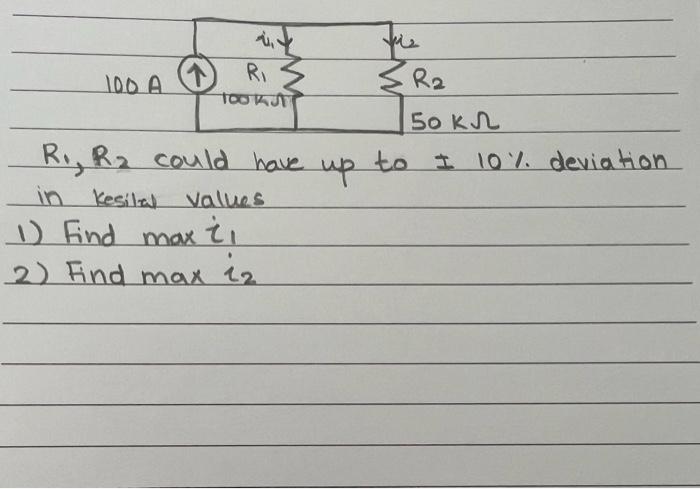 i₁ i₂
100 A R₁ R₂
100 KΩ
50 KΩ
R₁, R₂ could have up to ± 10% deviation
in values
1) Find max i₁
2) Find max i₂